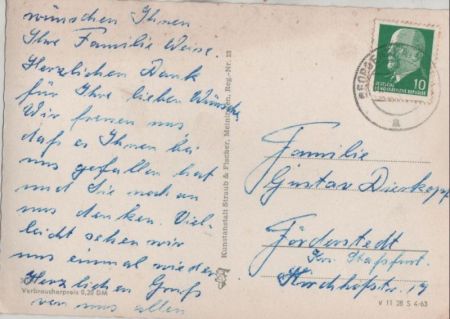 wünschen Ihnen
Ihre Familie Weise.
Herzlichen Dank
für Ihre lieben Wünsche
Wir freuen uns
daß es Ihnen bei
uns gefallen hat
und Sie noch an
uns denken. Viel-
leicht sehen wir
uns einmal wieder
Herzlichen Gruß
von uns allen
Verbraucherpreis 0,20 DM
Kunstanstalt Straub & Fischer, Meiningen, Reg.-Nr. 13
10
DEUTSCHE
DEMOKRATISCHE REPUBLIK
Familie
Gustav Dieskopf
Förderstedt
Krs. Stassfurt.
Kirchhofstr. 19
V 11 28 S 4/63